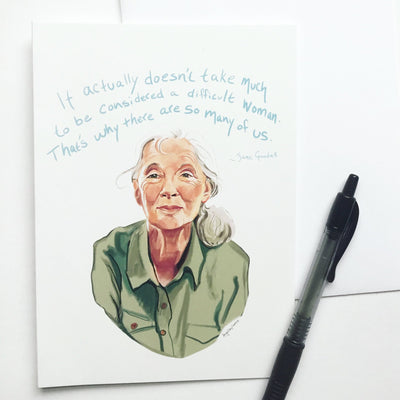 It actually doesn't take much
to be considered a difficult woman.
That's why there are so many of us.
~Jane Goodall